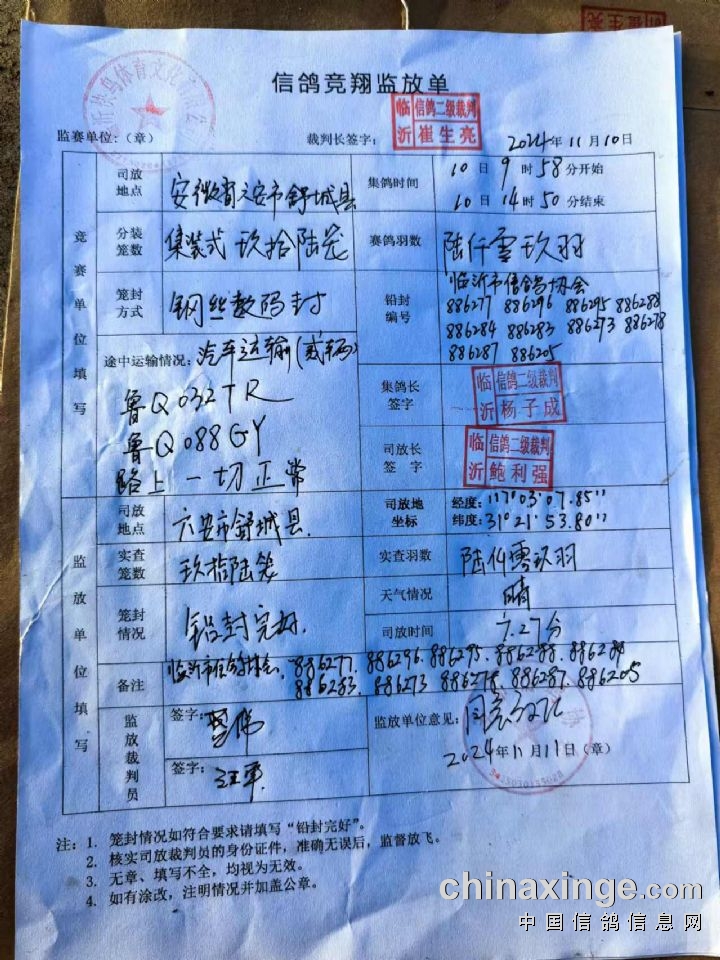 信鸽竞翔监放单
监赛单位:（章）
裁判长签字:
临沂 信鸽二级裁判 崔生亮
2024年11月10日
竞赛单位填写
司放地点
安徽省六安市舒城县
集鸽时间
10日9时58分开始
10日14时50分结束
分装笼数
集装式 玖拾陆笼
赛鸽羽数
陆仟零玖羽
笼封方式
钢丝数码封
铅封编号
临沂市信鸽协会
886277 886296 886295 886288
886284 886283 886273 886278
886287 886205
途中运输情况: 汽车运输(贰辆)
鲁Q032TR
鲁Q088GY
路上一切正常
集鸽长签字
临沂 信鸽二级裁判 杨子成
司放长签字
临沂 信鸽二级裁判 鲍利强
监放单位填写
司放地点
六安市舒城县.
司放地坐标
经度: 117°03'07.85"
纬度: 31°21'53.80"
实查笼数
玖拾陆笼
实查羽数
陆仟零玖羽
笼封情况
铅封完好.
天气情况
晴
司放时间
7.27分
备注
临沂市信鸽协会. 886277. 886296. 886295. 886288. 886284
886283. 886273 886278. 886287. 886205
监放裁判员
签字:
签字: 汪平
监放单位意见: 同意放飞
2024年11月11日（章）
注: 1. 笼封情况如符合要求请填写“铅封完好”。
2. 核实司放裁判员的身份证件，准确无误后，监督放飞。
3. 无章、填写不全，均视为无效。
4. 如有涂改，注明情况并加盖公章。
chinaxinge.com
中国信鸽信息网